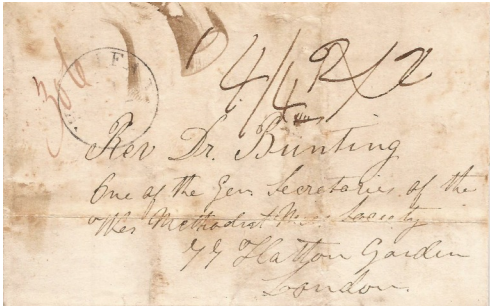 306
4/4 2/2
Rev Dr. Bunting
One of the Gen Secretaries of the
Wes Methodist Miss Society
77 Hatton Garden
London.